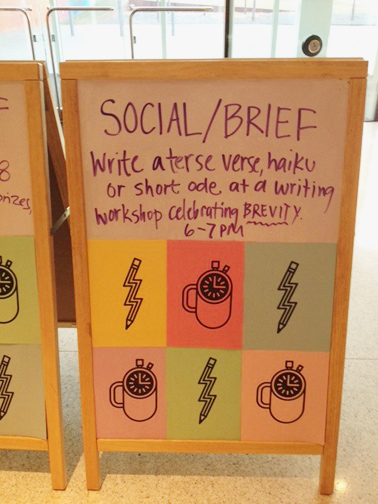 SOCIAL/BRIEF
Write a terse verse, haiku
or short ode at a writing
workshop celebrating BREVITY.
6-7 PM
8
prizes,